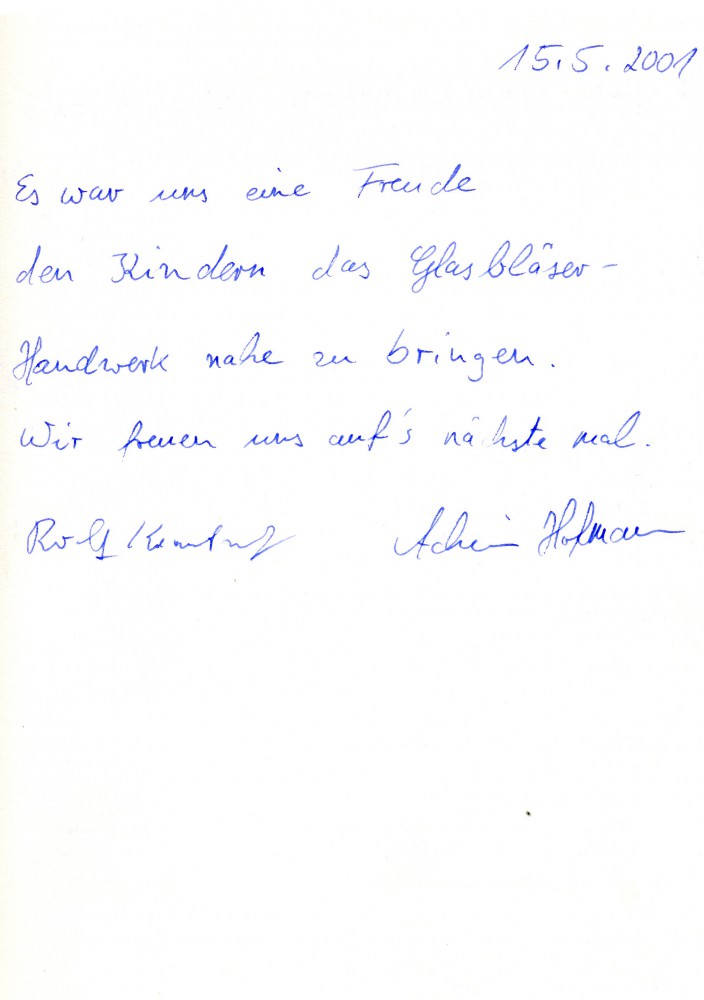 15.5.2001
Es war uns eine Freude
den Kindern das Glasbläser-
Handwerk nahe zu bringen.
Wir freuen uns auf's nächste mal.
Rolf Achim Hofmann